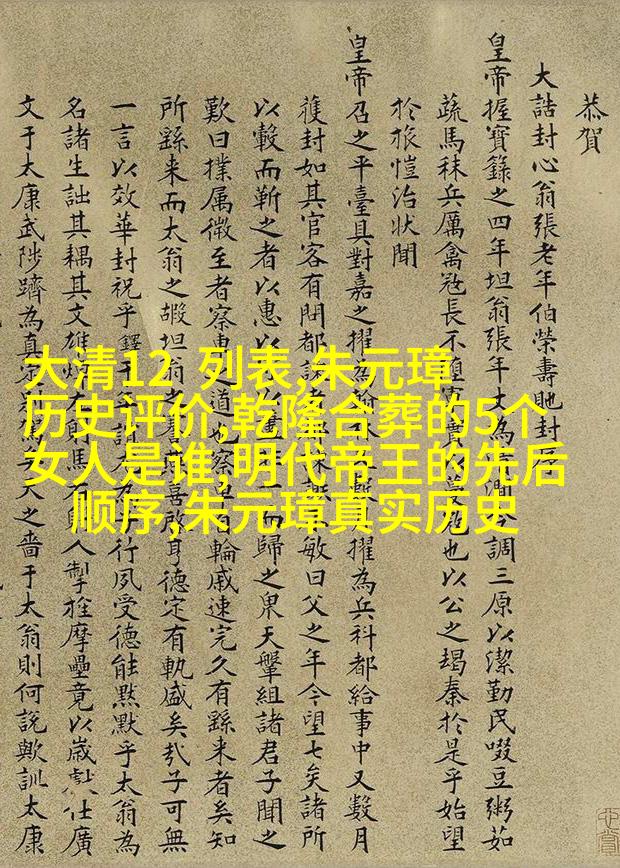 恭賀
大誥封心翁張老年伯榮壽貤封
皇帝握寶錄之四年坦翁張年丈為調三原以潔勤民啜豆粥茹
蔬馬秣兵厲禽寇長不也以公之竭秦於是乎始望
於旅愷治狀聞
皇帝召之平臺具對嘉之擢為擢為兵科都給事中又數月
獲封如其官客有問都敏曰父之年今望七矣諸所
以轂而靳之者以惠以而歸之天鞶組諸君子聞之
歎曰撲属微至者察車道也輪戚速完久有繇来者矣知
所繇来而太翁之嘏坦翁之喜啟耳德定有軌盛矣哉子可無
一言以效華封祝乎鐸行夙受德能默默乎太翁為
名諸生詘其耦其文雄人掣摩壘竟以歲仕廣
文于太康武陟躋為真定天之嗇于太翁則何說歟訓太康
大清12 列表,朱元璋
历史评价,乾隆合葬的5个
女人是谁,明代帝王的先后
顺序,朱元璋真实历史